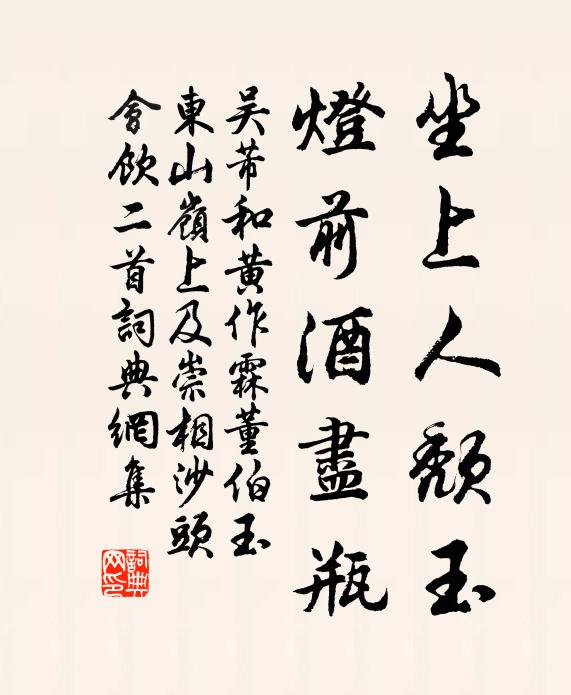 坐上人頽玉
燈前酒盡瓶
吴芾和黄作霖董伯玉
東山嶺上及崇相沙頭
會飲二首詞典網集
詞典网印